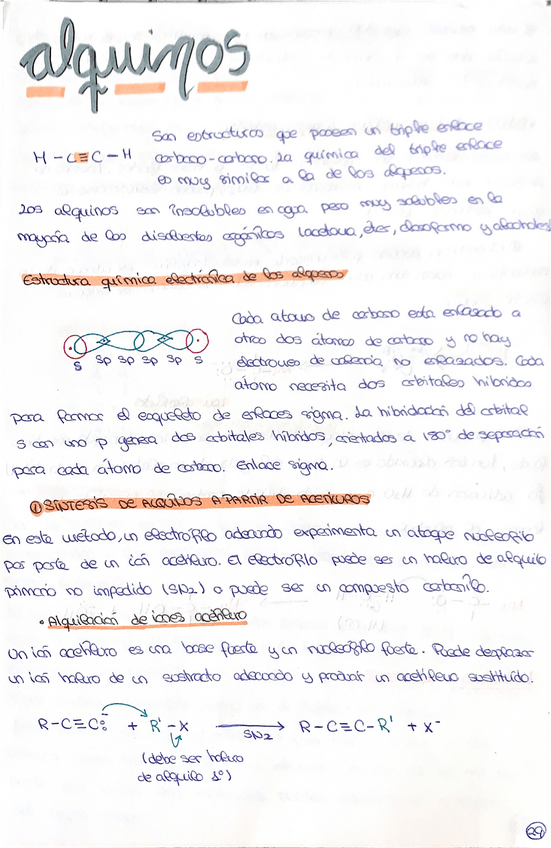 alquinos
Son estructuras que poseen un triple enlace
H - C≡C - H carbono-carbono. La química del triple enlace
es muy similar a la de los alquenos.
Los alquinos son insolubles en agua pero muy solubles en la
mayoría de los disolventes orgánicos (acetona, éter, cloroformo y alcoholes)
Estructura química electrónica de los alquenos
Cada átomo de carbono está enlazado a
otros dos átomos de carbono y no hay
electrones de valencia no enlazados. Cada
átomo necesita dos orbitales híbridos
S sp sp sp sp S
para formar el esqueleto de enlaces sigma. La hibridación del orbital
s con uno p genera dos orbitales híbridos, orientados a 180° de separación
para cada átomo de carbono. Enlace sigma.
① SÍNTESIS DE ALQUINOS A PARTIR DE ACETILUROS
En este método, un electrófilo adecuado experimenta un ataque nucleófilo
por parte de un ión acetiluro. El electrófilo puede ser un haluro de alquilo
primario no impedido (SN2) o puede ser un compuesto carbonilo.
• Alquilación de iones acetiluro
Un ión acetiluro es una base fuerte y un nucleófilo fuerte. Puede desplazar
un ión haluro de un sustrato adecuado y producir un acetileno sustituido.
R-C≡C:⁻ + R'-X SN2 R-C≡C-R' + X⁻
(debe ser haluro
de alquilo 1°)
29